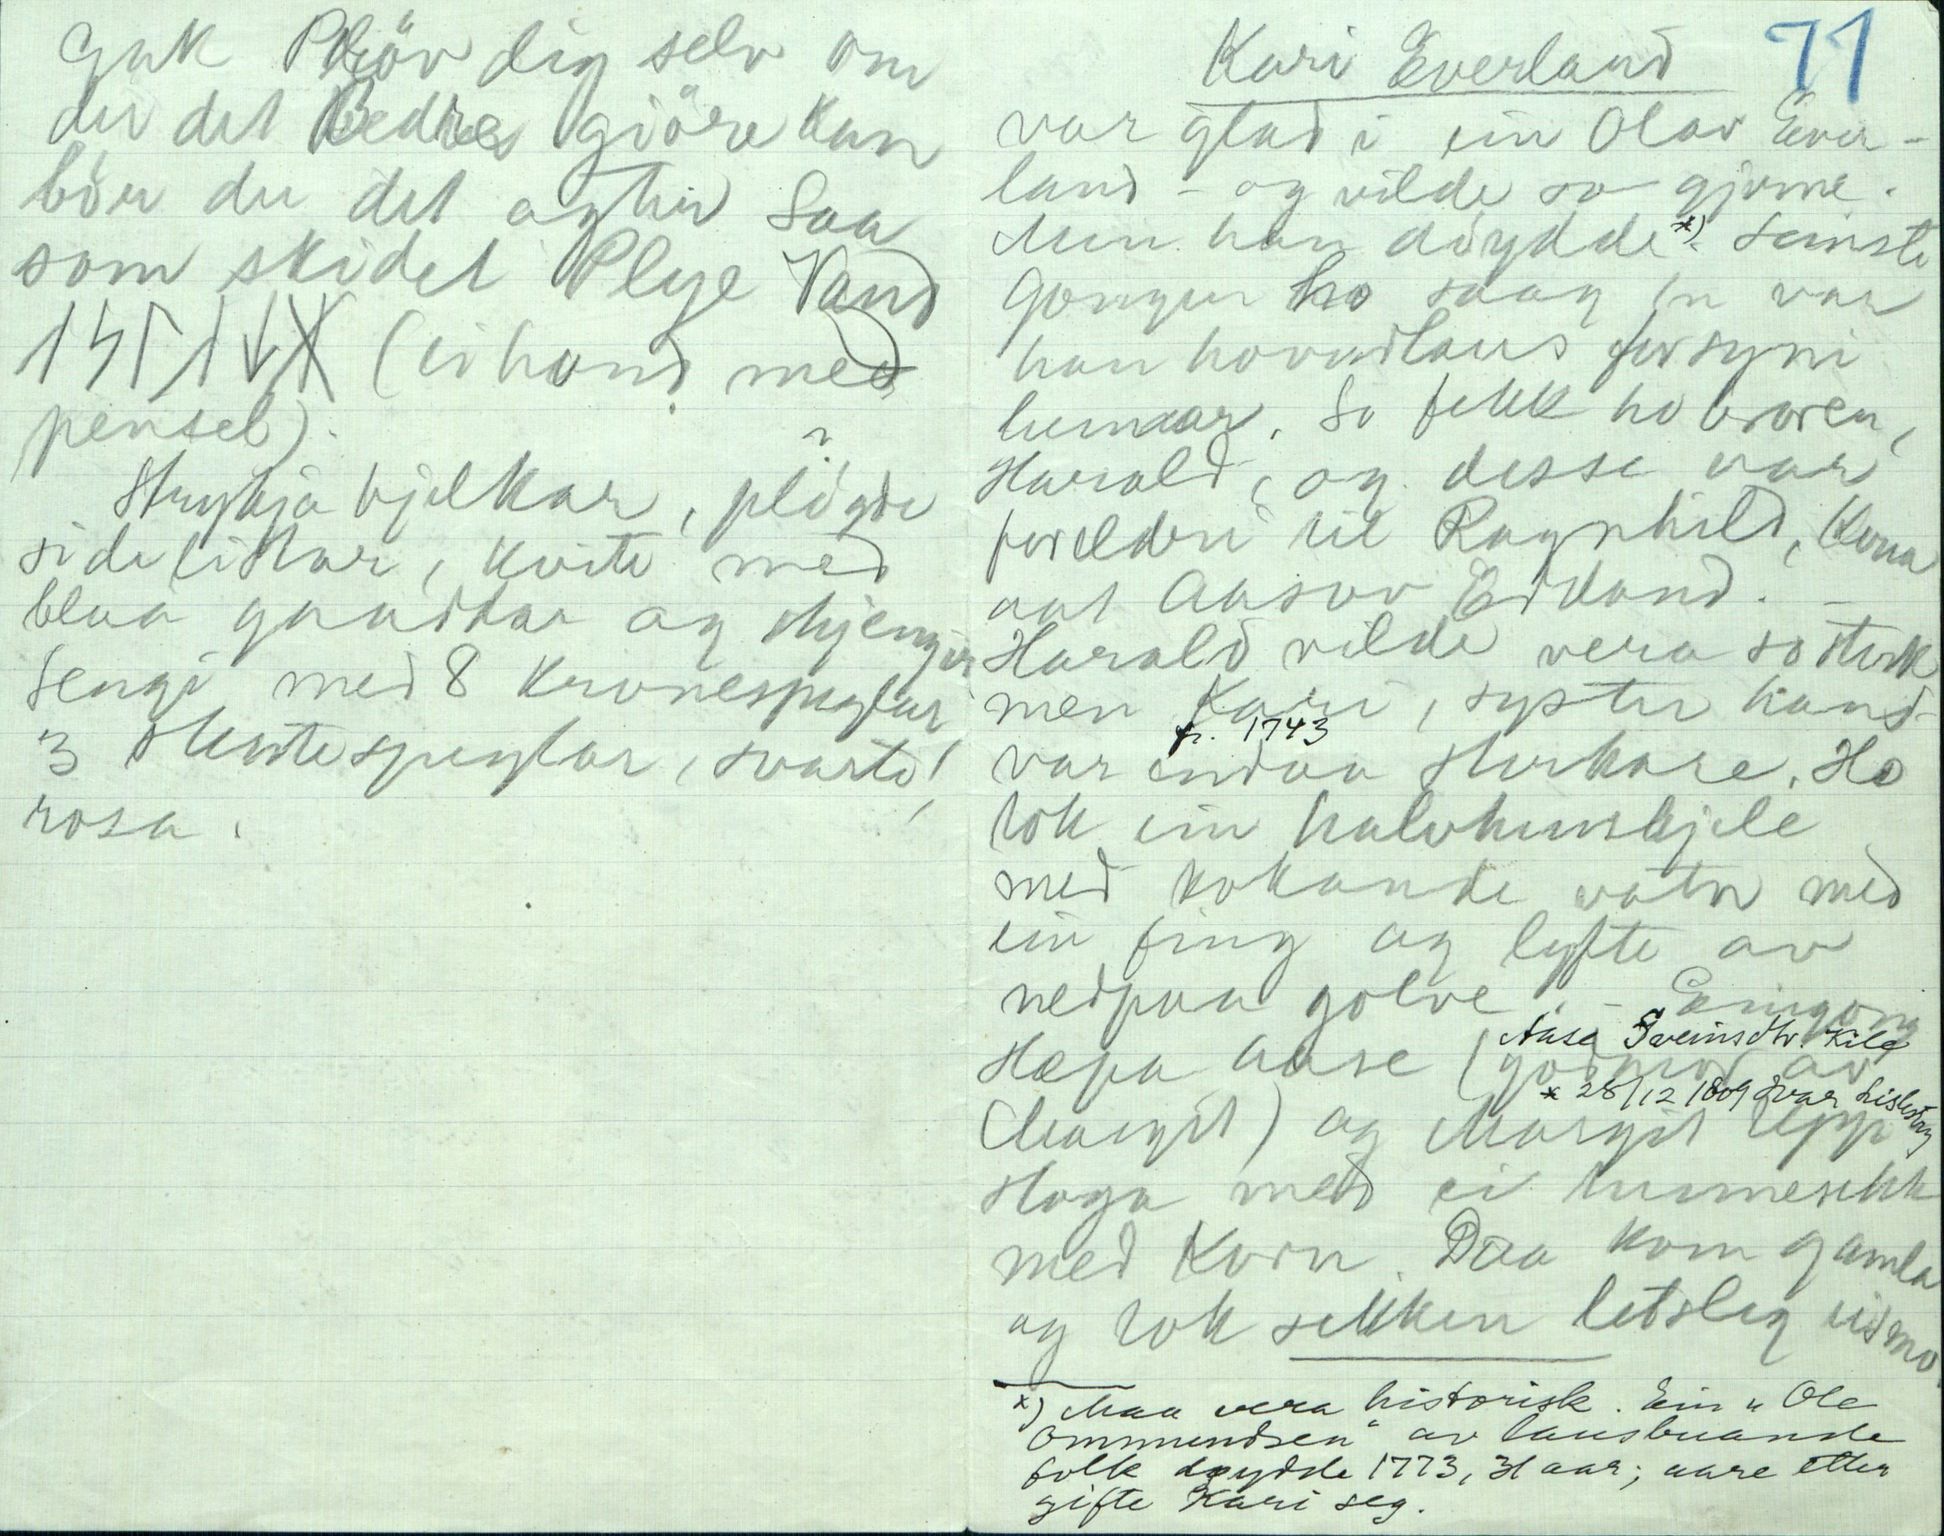 Gak Pröv dig selv om
du det Bedres giöre kan
bör du det agter Saa
som skidet Plye Vand
(ei hand med
pensel).
bjelkar, plögde
sidelistar, kvite med
blaa
Sengi med 8 kronespeglar
3 speglar, svarte,
rosa.
71
Kari Everland
var glad i ein Olav Ever-
land – og vilde so gjerne.
Men han döydde *). Seinste
Gongen ho saag 'n var
han hovudlaus for syni
hennar. So fekk ho broren,
Harald, og desse var
foreldri til Ragnhild, kona
aat Aasov Edland. –
Harald vilde vera so sterk
men Kari, syster hans
f. 1743
var endaa sterkare. Ho
tok ein halvtunskjele
med kokande vatn med
ein fing og lyfte av
nedpaa golve. – Eingong
Aase Sveinsdtr. Kile
Stepa Aase (godmor av
* 28/12 1801
Margit) og Margit
med ei tunnesekk
med Korn. Daa kom gamla
og tok sekken letsleg
*) Maa vera historisk. Ein „Ole
Ommundsen" av lausbuande
folk döydde 1773, 31 aar; aare etter
gifte Kari seg.